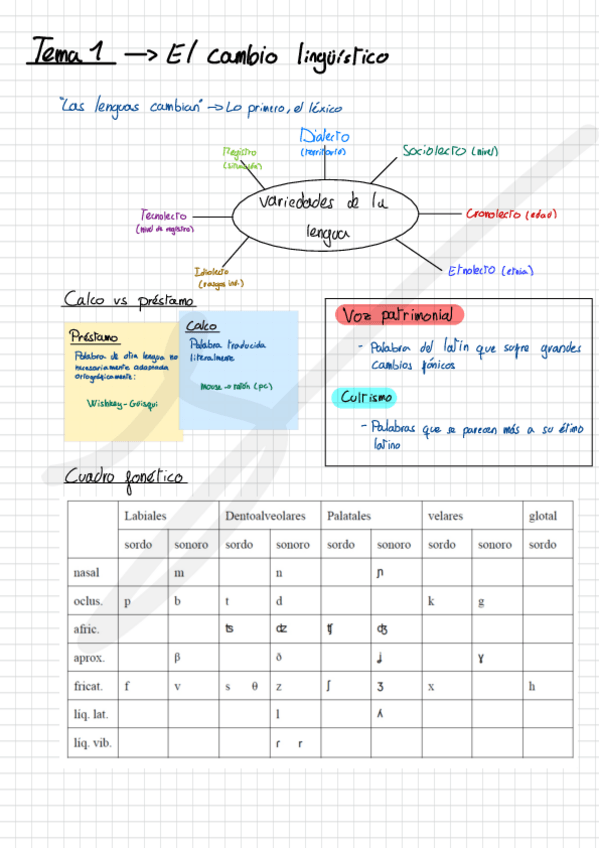 Tema 1 → El cambio lingüístico
"Las lenguas cambian" → Lo primero, el léxico
Dialecto
(territorio)
Registro
(situación)
Sociolecto (nivel)
Tecnolecto
(nivel de registro)
variedades de la
lengua
Cronolecto (edad)
Idiolecto
(rasgos ind.)
Etnolecto (etnia)
Calco vs préstamo
Préstamo
Palabra de otra lengua no
necesariamente adaptada
ortográficamente:
Wishkey - Güisqui
Calco
Palabra traducida
literalmente
Mouse → ratón (pc)
Voz patrimonial
- Palabra del latín que sufre grandes
cambios fónicos
Cultismo
- Palabras que se parecen más a su étimo
latino
Cuadro fonético
Labiales Dentoalveolares Palatales velares glotal
sordo sonoro sordo sonoro sordo sonoro sordo sonoro sordo
nasal m n ɲ
oclus. p b t d k g
afric. ʦ ʣ ʧ ʤ
aprox. β ð ʝ ɣ
fricat. f v s θ z ʃ ʒ x h
liq. lat. l ʎ
liq. vib. ɾ r